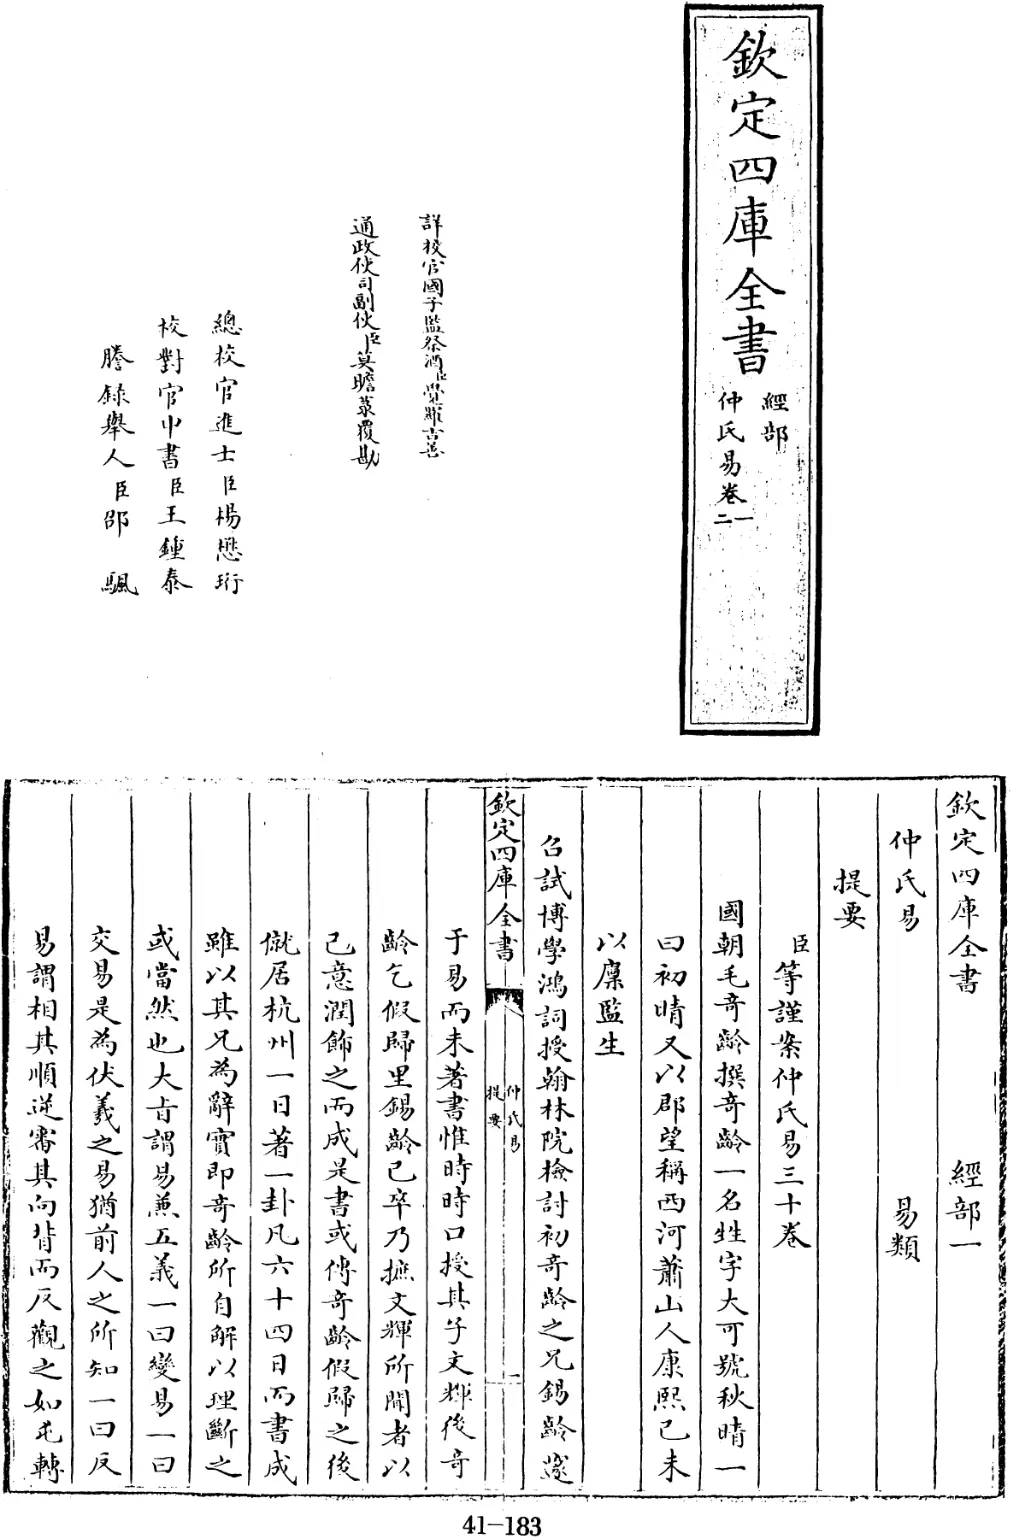 欽定四庫全書
經部
仲氏易卷一
二
詳校官國子監祭酒臣覺羅吉善
通政使司副使臣莫瞻菉覆勘
總校官進士臣楊懋珩
校對官中書臣王鍾泰
謄錄舉人臣邵颿
欽定四庫全書 經部一
仲氏易 易類
提要
臣等謹案仲氏易三十卷
國朝毛奇齡撰奇齡一名甡字大可號秋晴一
曰初晴又以郡望稱西河蕭山人康熙己未
以廩監生
召試博學鴻詞授翰林院檢討初奇齡之兄錫齡邃
欽定四庫全書
仲氏易
提要
一
于易而未著書惟時時口授其子文輝後奇
齡乞假歸里錫齡已卒乃摭文輝所聞者以
己意潤飾之而成是書或傳奇齡假歸之後
僦居杭州一日著一卦凡六十四日而書成
雖以其兄為辭實即奇齡所自解以理斷之
或當然也大旨謂易兼五義一曰變易一曰
交易是為伏羲之易猶前人之所知一曰反
易謂相其順逆審其向背而反觀之如屯轉
41-183